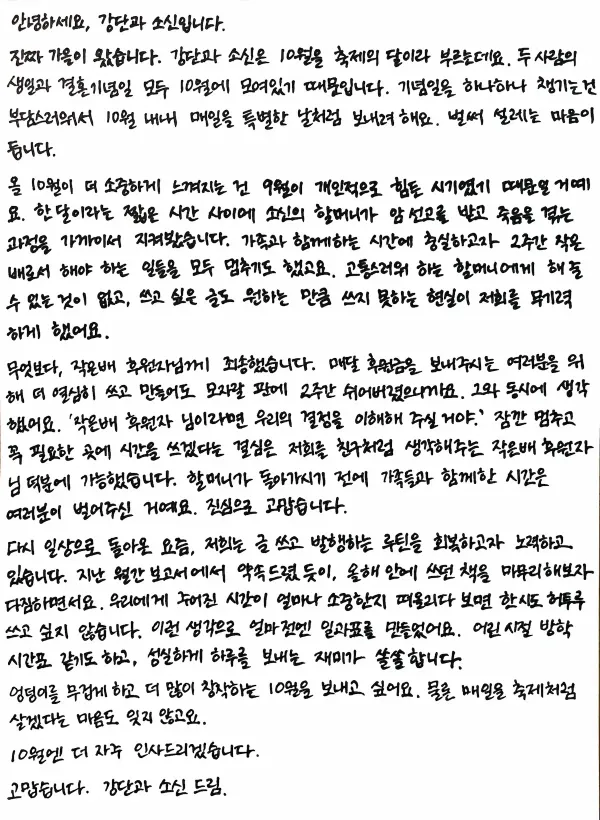 안녕하세요, 강단과 소신입니다.
진짜 가을이 왔습니다. 강단과 소신은 10월을 축제의 달이라 부르는데요. 두 사람의
생일과 결혼기념일 모두 10월에 모여있기 때문입니다. 기념일을 하나하나 챙기는 건
부담스러워서 10월 내내 매일을 특별한 날처럼 보내려 해요. 벌써 설레는 마음이
듭니다.
올 10월이 더 소중하게 느껴지는 건 9월이 개인적으로 힘든 시기였기 때문일 거예
요. 한 달이라는 짧은 시간 사이에 소신의 할머니가 암 선고를 받고 죽음을 겪는
과정을 가까이서 지켜봤습니다. 가족과 함께하는 시간에 충실하고자 2주간 작은
배로서 해야 하는 일들을 모두 멈추기도 했고요. 고통스러워 하는 할머니에게 해줄
수 있는 것이 없고, 쓰고 싶은 글도 원하는 만큼 쓰지 못하는 현실이 저희를 무기력
하게 했어요.
무엇보다, 작은배 후원자님께 죄송했습니다. 매달 후원금을 보내주시는 여러분을 위
해 더 열심히 쓰고 만들어도 모자랄 판에 2주간 쉬어버렸으니까요. 그와 동시에 생각
했어요. '작은배 후원자 님이라면 우리의 결정을 이해해 주실 거야.' 잠깐 멈추고
꼭 필요한 곳에 시간을 쓰겠다는 결심은 저희를 친구처럼 생각해주는 작은배 후원자
님 덕분에 가능했습니다. 할머니가 돌아가시기 전에 가족들과 함께한 시간은
여러분이 벌어주신 거예요. 진심으로 고맙습니다.
다시 일상으로 돌아온 요즘, 저희는 글 쓰고 발행하는 루틴을 회복하고자 노력하고
있습니다. 지난 월간 보고서에서 약속드렸듯이, 올해 안에 쓰던 책을 마무리해보자
다짐하면서요. 우리에게 주어진 시간이 얼마나 소중한지 떠올리다 보면 한시도 허투루
쓰고 싶지 않습니다. 이런 생각으로 얼마 전엔 일과표를 만들었어요. 어린 시절 방학
시간표 같기도 하고, 성실하게 하루를 보내는 재미가 쏠쏠합니다.
엉덩이를 무겁게 하고 더 많이 창작하는 10월을 보내고 싶어요. 물론 매일을 축제처럼
살겠다는 마음도 잊지 않고요.
10월엔 더 자주 인사드리겠습니다.
고맙습니다. 강단과 소신 드림.